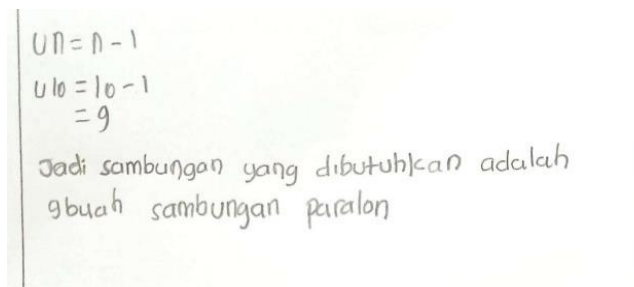 Un = n - 1
U10 = 10 - 1
= 9
Jadi sambungan yang dibutuhkan adalah
9buah sambungan paralon